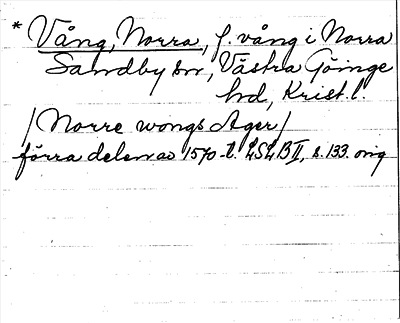 * Vång, Norra, f. vång i Norra
Sandby sn, Västra Göinge
hd, Krist. l.
/ Norre wongs Ager /
förra delen av 1570-t. LSLB II, s. 133. orig